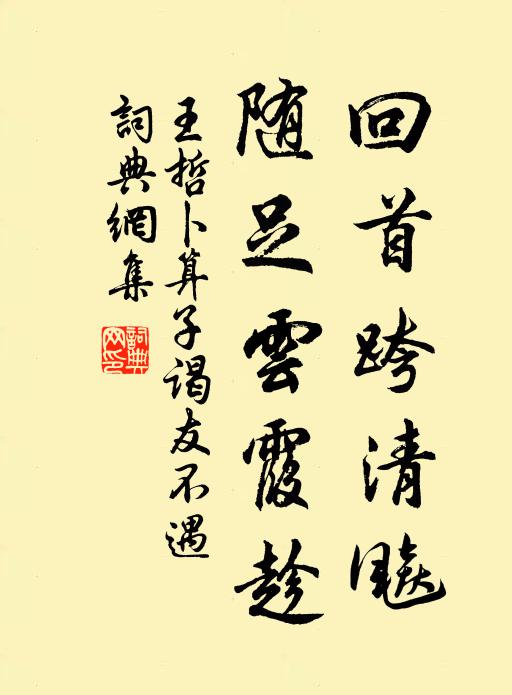 回首跨清飈
随足雲霞趁
王哲卜算子謁友不遇
詞典網集
詞典网印